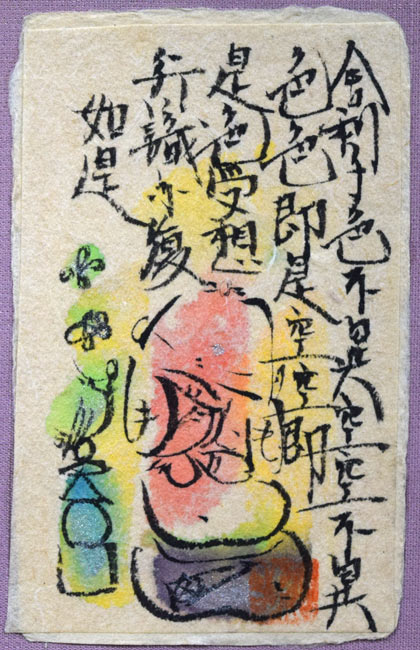 舎利子色不異空空不異
色色即是空空即
是色受想
行識亦復
如是